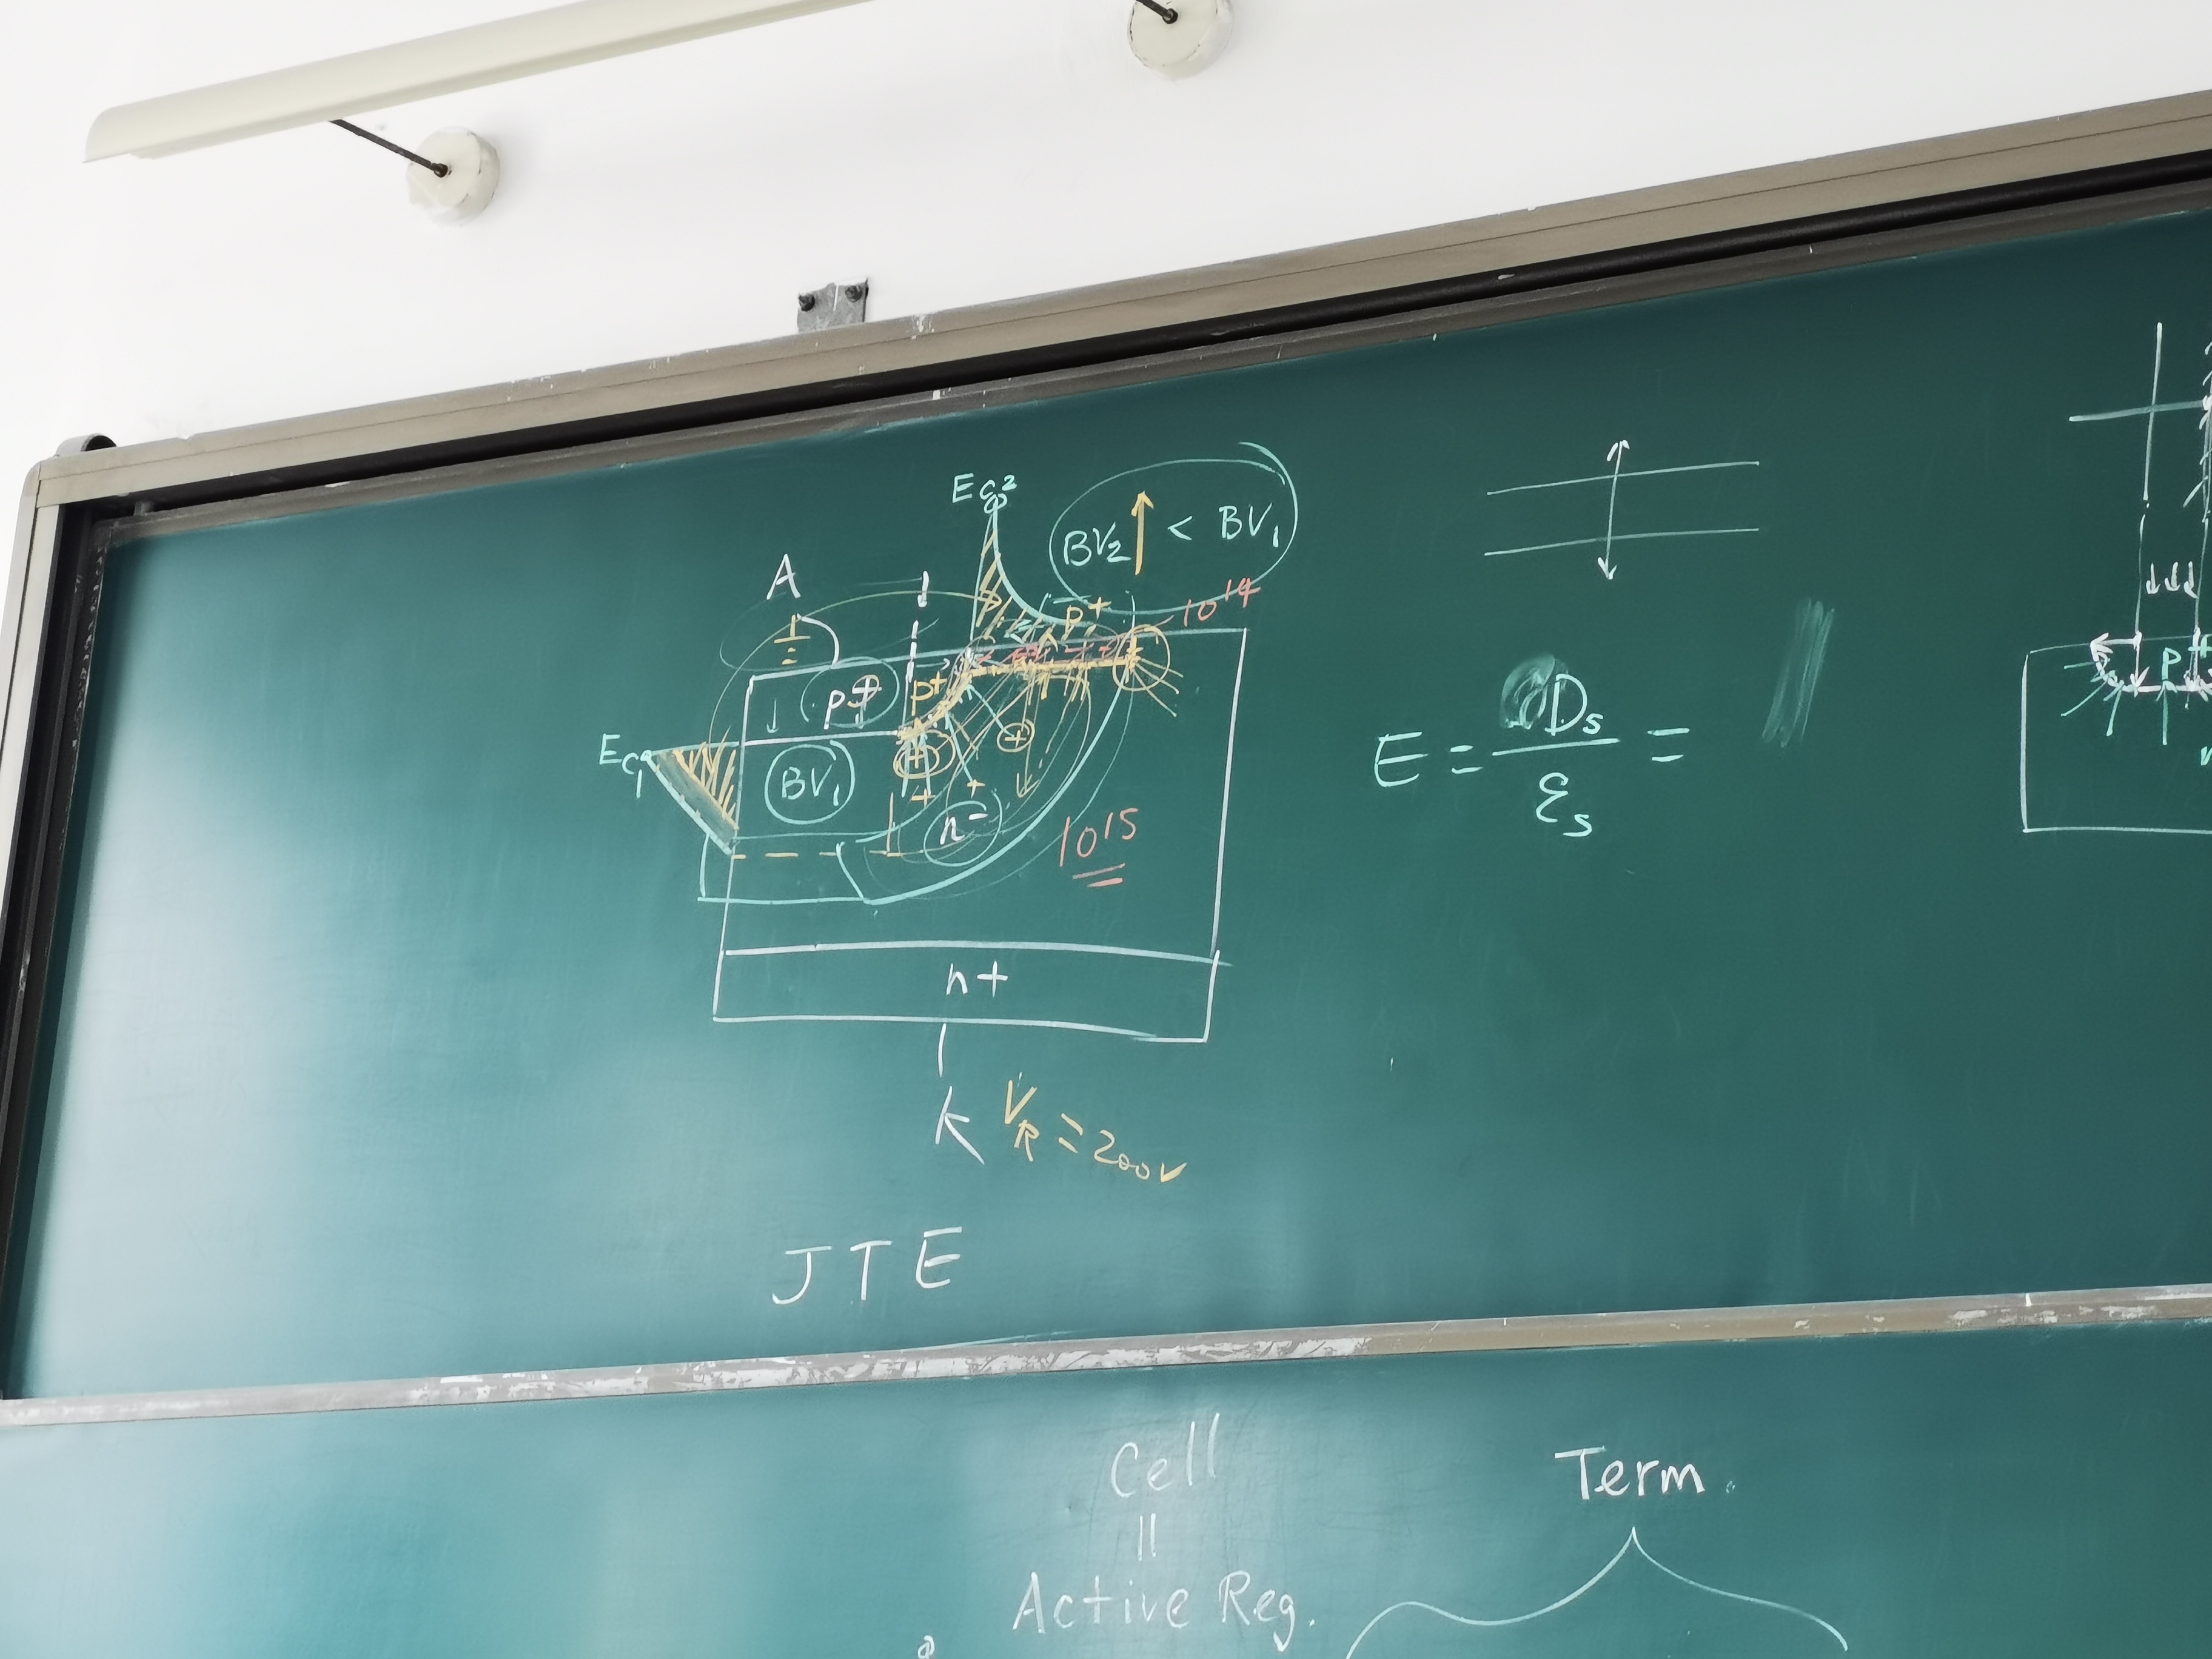 Ec2
BV2 ↑ < BV1
A
10^14
p+
p+
p+
Ec1
BV1
n-
10^15
n+
K VR = 200V
JTE
E = Ds / εs =
p+
Cell
=
Active Reg.
Term.